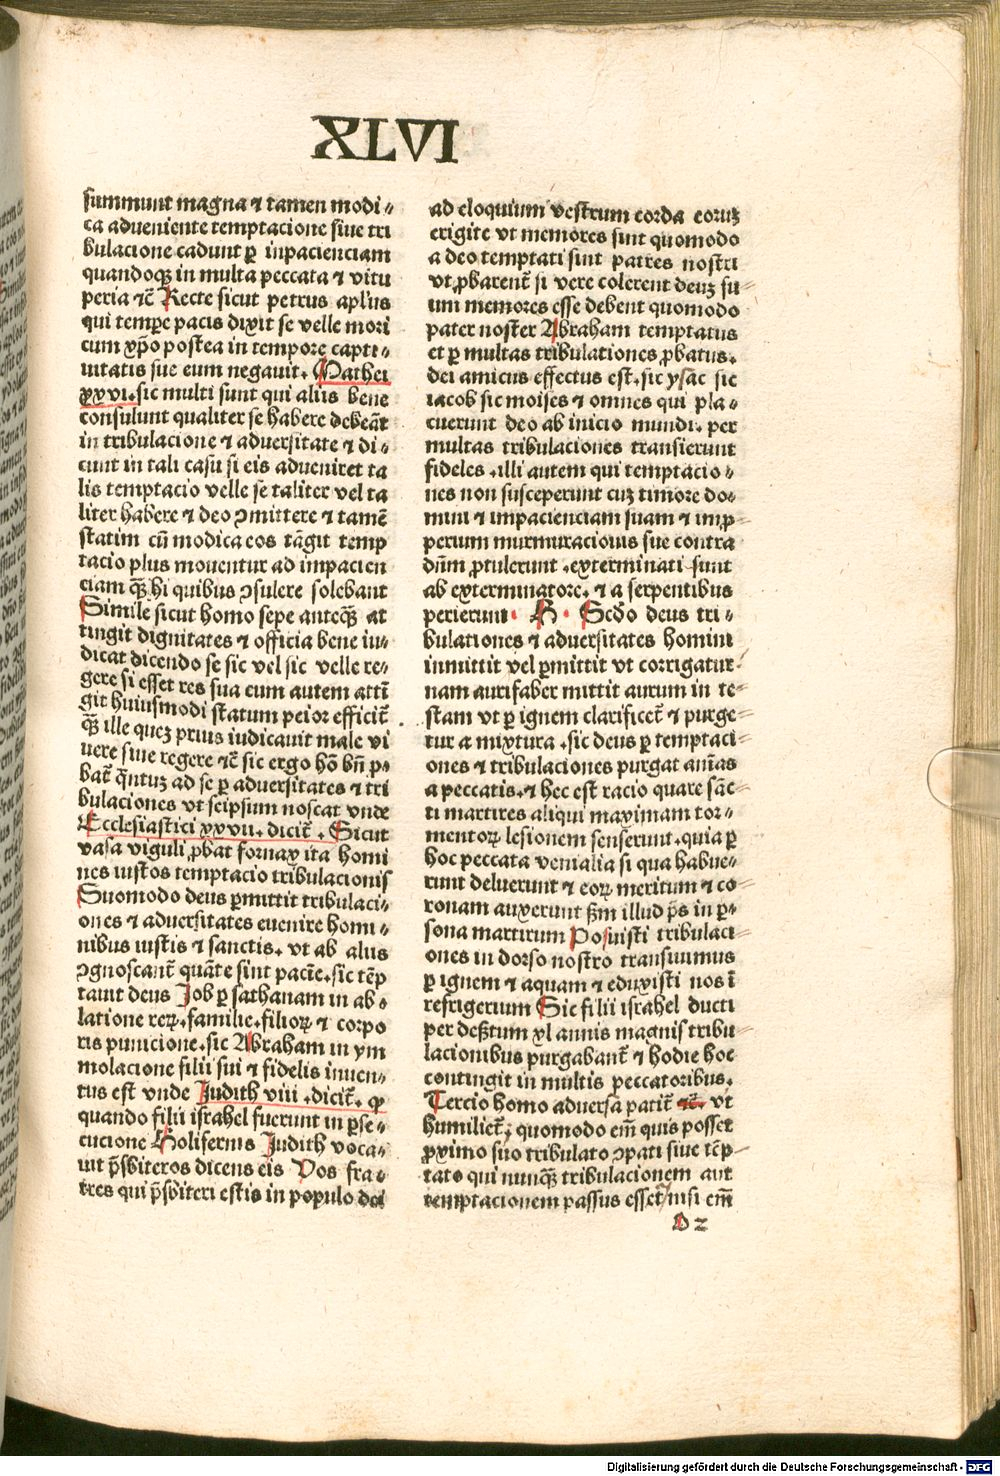 XLVI
summunt magna ⁊ tamen modi⸗
ca adveniente temptacione sive tri
bulacione cadunt ꝑ inpacienciam
quandoqꝫ in multa peccata ⁊ vitu
peria ⁊c̄ Recte sicut petrus apl'us
qui tempe pacis dixit se velle mori
cum xp̄o postea in tempore capti⸗
vitatis sue eum negavit. Mathei
xxvi. sic multi sunt qui aliis bene
consulunt qualiter se habere debeāt
in tribulacione ⁊ adversitate ⁊ di⸗
cunt in tali casu si eis adveniret ta
lis temptacio velle se taliter vel ta
liter habere ⁊ deo ꝯmittere ⁊ tamē
statim cū modica eos tāgit temp
tacio plus moventur ad impacien
ciam qꝫ̄ hi quibus ꝯsulere solebant
Simile sicut homo sepe anteqꝫ̄ at
tingit dignitates ⁊ officia bene iu⸗
dicat dicendo se sic vel sic velle re⸗
gere si esset res sua cum autem atti
git huiusmodi statum peior efficit̄
qꝫ̄ ille quez prius iudicavit male vi
vere sive regere ⁊c̄ sic ergo hō bn̄ ꝓ⸗
bat̄ q̄ntuz ad se ꝑ adversitates ⁊ tri
bulaciones vt seipsum noscat vnde
Ecclesiastici xxvii. dicit̄. Sicut
vasa viguli ꝓbat fornax ita homi
nes iustos temptacio tribulacionis
Suomodo deus ꝑmittit tribulaci⸗
ones ⁊ adversitates evenire homi⸗
nibus iustis ⁊ sanctis. vt ab aliis
ꝯgnoscant̄ quāte sint pacīe. sic tēp
tavit deus Job ꝑ sathanam in ab⸗
latione reꝝ. familie. filioꝝ ⁊ corpo
ris punicione. sic Abraham in ym
molacione filii sui ⁊ fidelis inven⸗
tus est vnde Judith viii. dicit̄. ꝙ
quando filii israhel fuerunt in ꝑse⸗
cucione Holifernis Judith voca⸗
vit p̄sbiteros dicens eis Vos fra⸗
tres qui p̄sbiteri estis in populo dei
ad eloquium vestrum corda eoruz
erigite vt memores sint quomodo
a deo temptati sint patres nostri
vt ꝓbarent̄ si vere colerent deuz su⸗
um memores esse debent quomodo
pater noster Abraham temptatus
et ꝑ multas tribulationes ꝓbatus.
dei amicus effectus est. sic ysac sic
iacob sic moises ⁊ omnes qui pla⸗
cuerunt deo ab inicio mundi. per
multas tribulaciones transierunt
fideles. illi autem qui temptacio⸗
nes non susceperunt cuz timore do⸗
mini ⁊ impacienciam suam ⁊ imp̱⸗
perium murmuracionis sue contra
dn̄m ꝓtulerunt. exterminati sunt
ab exterminatore. ⁊ a serpentibus
perierunt. H. Scd̄o deus tri⸗
bulationes ⁊ adversitates homini
inmittit vel ꝑmittit vt corrigatur.
nam aurifaber mittit aurum in te⸗
stam vt ꝑ ignem clarificet̄ ⁊ purge⸗
tur a mixtura. sic deus ꝑ temptaci⸗
ones ⁊ tribulaciones purgat aīas
a peccatis. ⁊ hec est racio quare sāc⸗
ti martires aliqui maximam tor⸗
mentoꝝ lesionem senserunt. quia ꝑ
hoc peccata venialia si qua habue⸗
runt deluerunt ⁊ eoꝝ meritum ⁊ co⸗
ronam auxerunt ẜm illud p̄s in ꝑ⸗
sona martirum Posuisti tribulaci⸗
ones in dorso nostro transivimus
ꝑ ignem ⁊ aquam ⁊ eduxisti nos ī
refrigerium Sic filii israhel ducti
per deẜtum xl annis magnis tribu⸗
lacionibus purgabant̄ ⁊ hodie hoc
contingit in multis peccatoribus.
Tercio homo adversa patit̄ ⁊c̄. vt
humiliet̄, quomodo em̄ quis posset
ꝓximo suo tribulato ꝯpati sive tēp⸗
tato qui nunqꝫ̄ tribulacionem aut
temptacionem passus esset, nisi em̄
D2
Digitalisierung gefördert durch die Deutsche Forschungsgemeinschaft - DFG